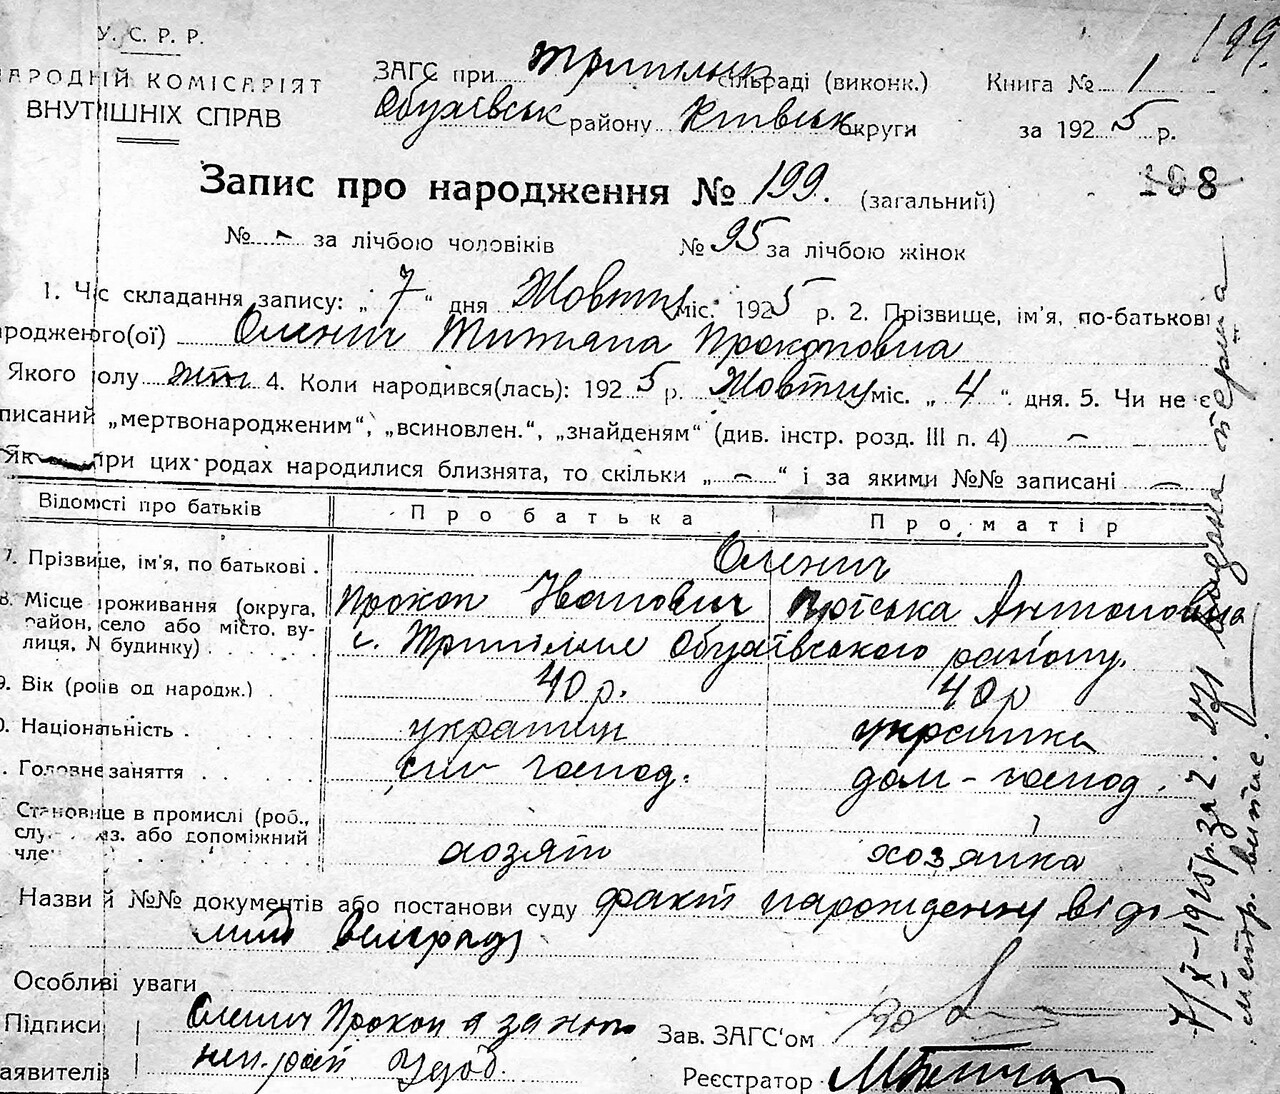 199.
У. С. Р. Р.
НАРОДНІЙ КОМІСАРІЯТ
ВНУТІШНІХ СПРАВ
ЗАГС при Трипільск сільраді (виконк.)
Обухівськ району Київськ округи
Книга № 1
за 1925 р.
Запис про народження № 199. (загальний)
188
№ - за лічбою чоловіків № 95 за лічбою жінок
1. Час складання запису: „ 7 “ дня Жовтня міс. 1925 р. 2. Прізвище, ім'я, по-батькові
народженого(ої) Оленич Титяна Прокоповна
Якого полу жін 4. Коли народився(лась): 1925 р. Жовтня міс. „ 4 “ дня. 5. Чи не є
писаний „мертвонародженим“, „всиновлен.“, „знайденям“ (див. інстр. розд. III п. 4) -
Як при цих родах народилися близнята, то скільки „ - “ і за якими №№ записані -
Відомісті про батьків Про батька Про матір
7. Прізвище, ім'я, по батькові . Оленич
Прокоп Іванович Антоновна
8. Місце проживання (округа, район, село або місто, ву-
лиця, N будинку) . с. Трипілля Обухівського району.
9. Вік (років од народж.) . 40 р. 40 р
0. Національність . українець українка
. Головне заняття . . сіл- господ. дом-господ.
Становище в промислі (роб.,
слу. аз. або допоміжний
чле
хозяін хозяика
Назви й №№ документів або постанови суду факт нарожденну віді-
мий
Особливі уваги
Підписи Оленич Прокоп а за него
заявителів непис. Удод.
Зав. ЗАГС'ом
Реєстратор
7/X-1925 р. за № 271 видана перша
метр. витяг.